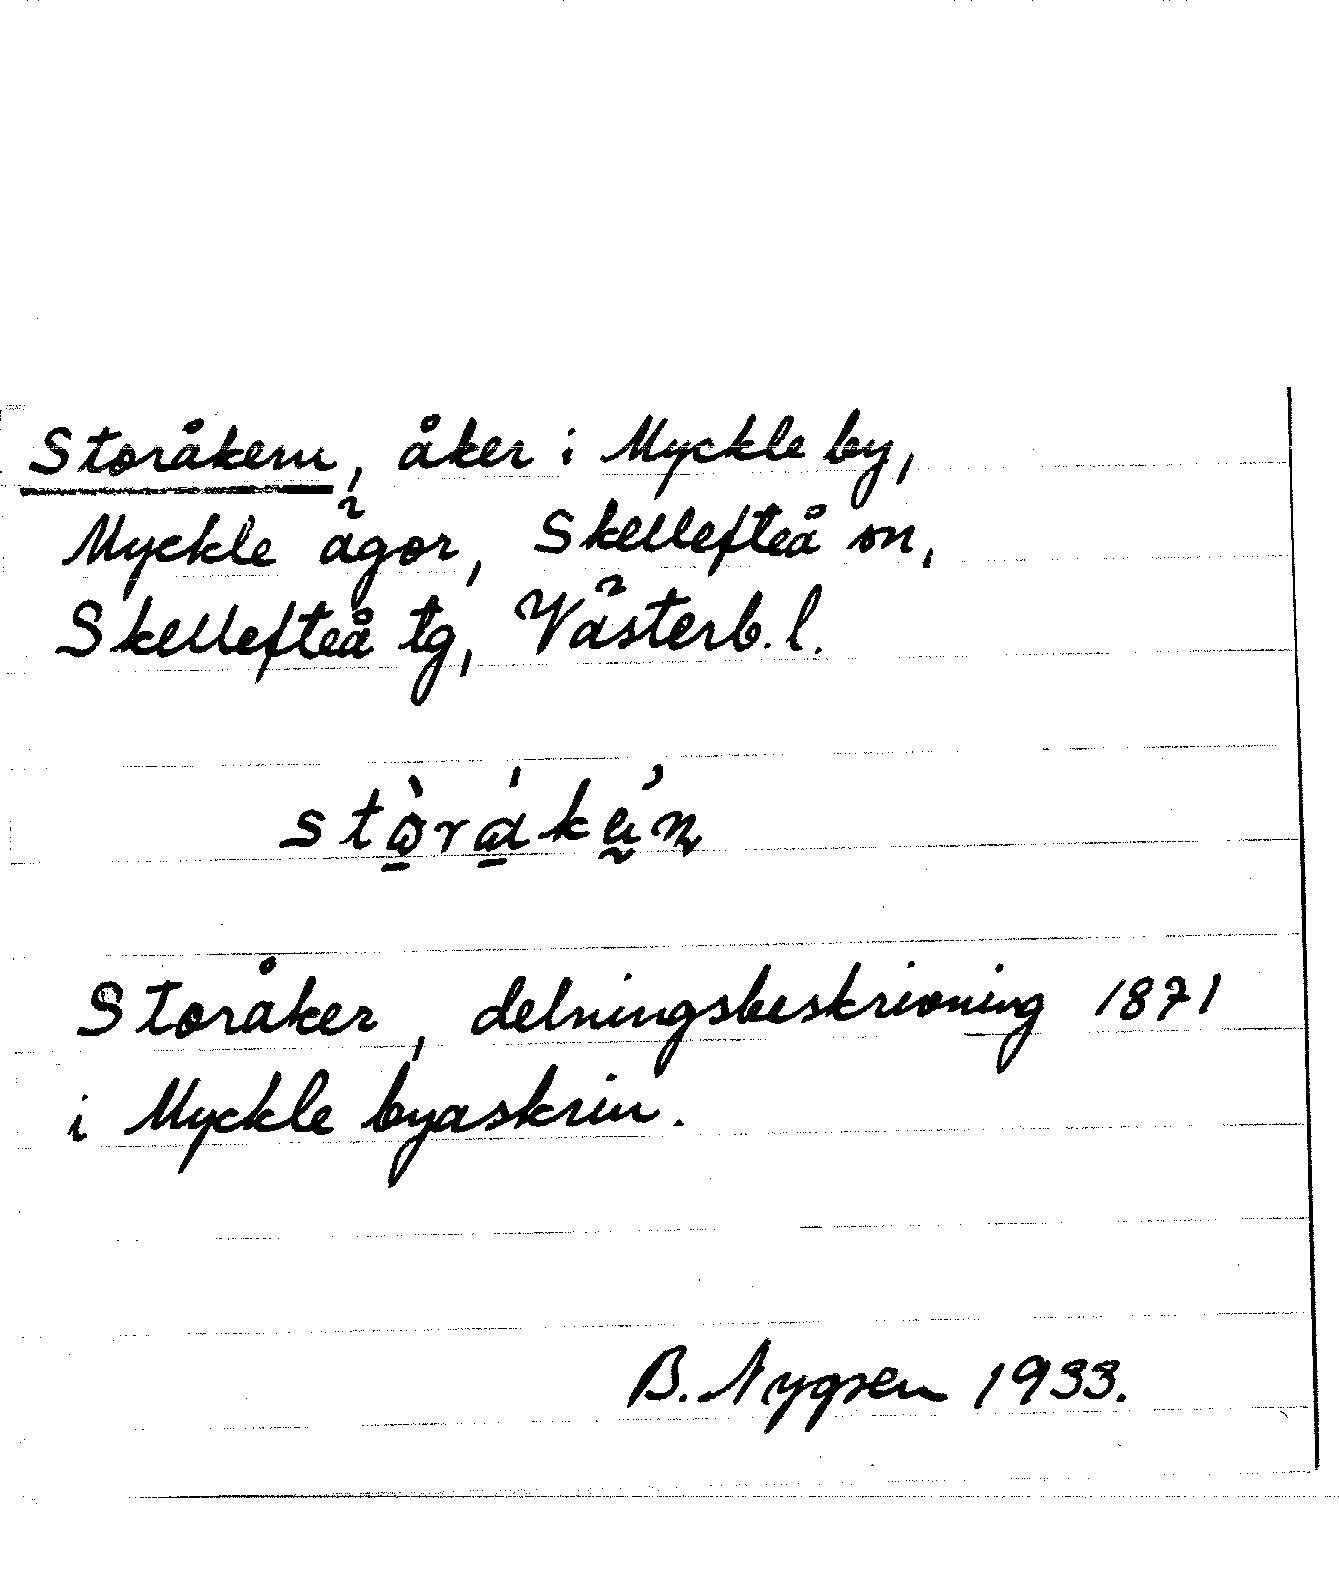 Storåkern, åker i Myckle by,
Myckle ägor, Skellefteå sn,
Skellefteå tg, Västerb. l.
Storåker, delningsbeskrivning 1871
i Myckle byaskrin.
B. Nygren 1933.